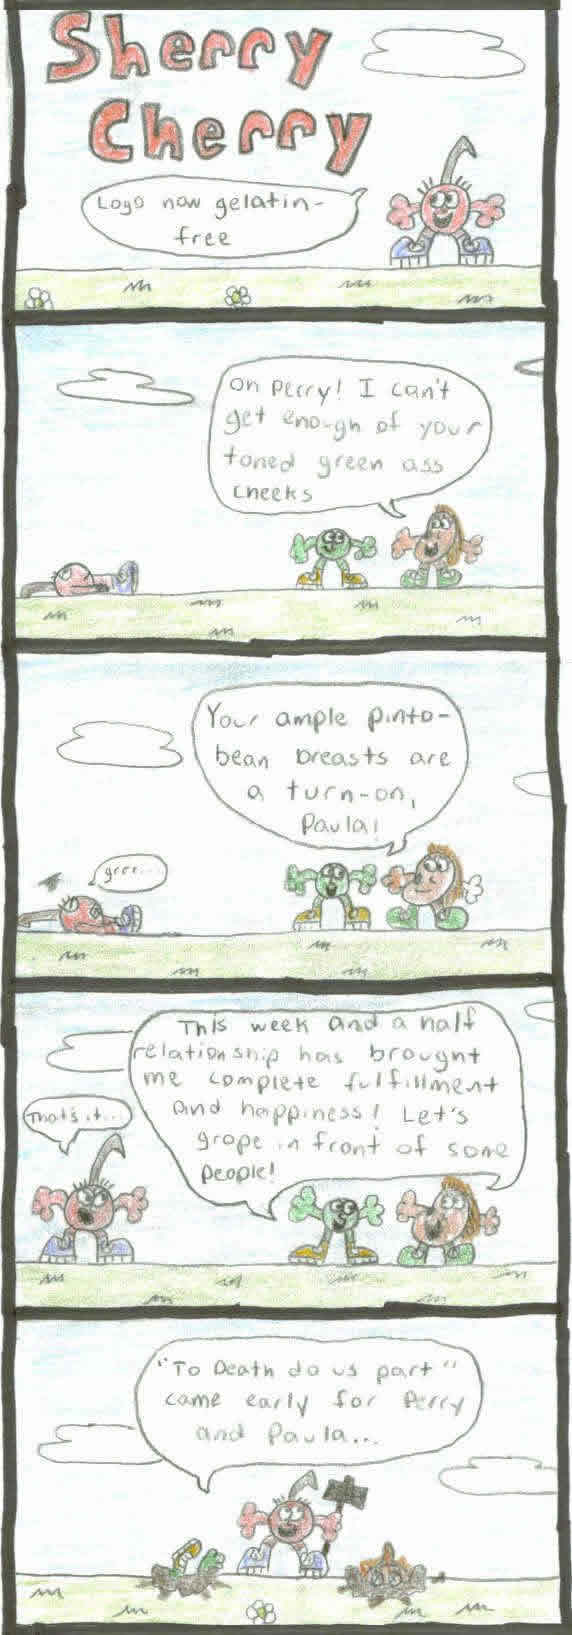 Sherry
Cherry
Logo now gelatin-
free
Oh Perry! I can't
get enough of your
toned green ass
cheeks
Your ample pinto-
bean breasts are
a turn-on,
Paula!
grrr...
This week and a half
relationship has brought
me complete fulfillment
and happiness! Let's
grope in front of some
people!
That's it...
"To Death do us part"
came early for Perry
and Paula...